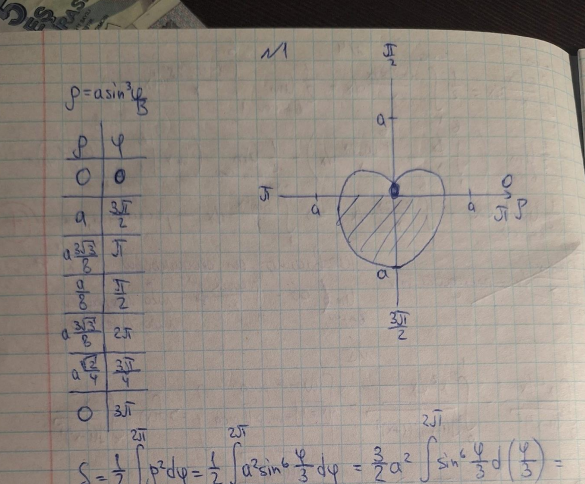 №1
ρ = a sin³ φ/3
ρ | φ
0 | 0
a | 3π/2
a 3√3/8 | π
a/8 | π/2
a 3√3/8 | 2π
a √2/4 | 3π/4
0 | 3π
π/2
a
π a a 0 π ρ
a
3π/2
S = 1/2 ∫ 2π ρ² dφ = 1/2 ∫ 2π a² sin⁶ φ/3 dφ = 3/2 a² ∫ 2π sin⁶ φ/3 d(φ/3) =